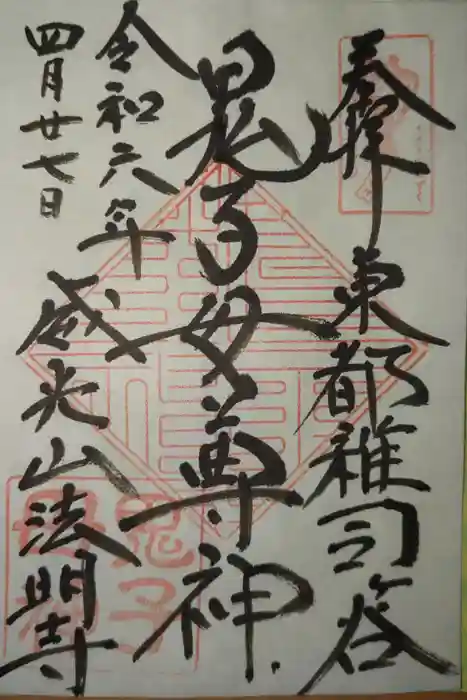 奉拝 東都雑司谷
鬼子母尊神
令和六年 威光山法明寺
四月廿七日
鬼子母神